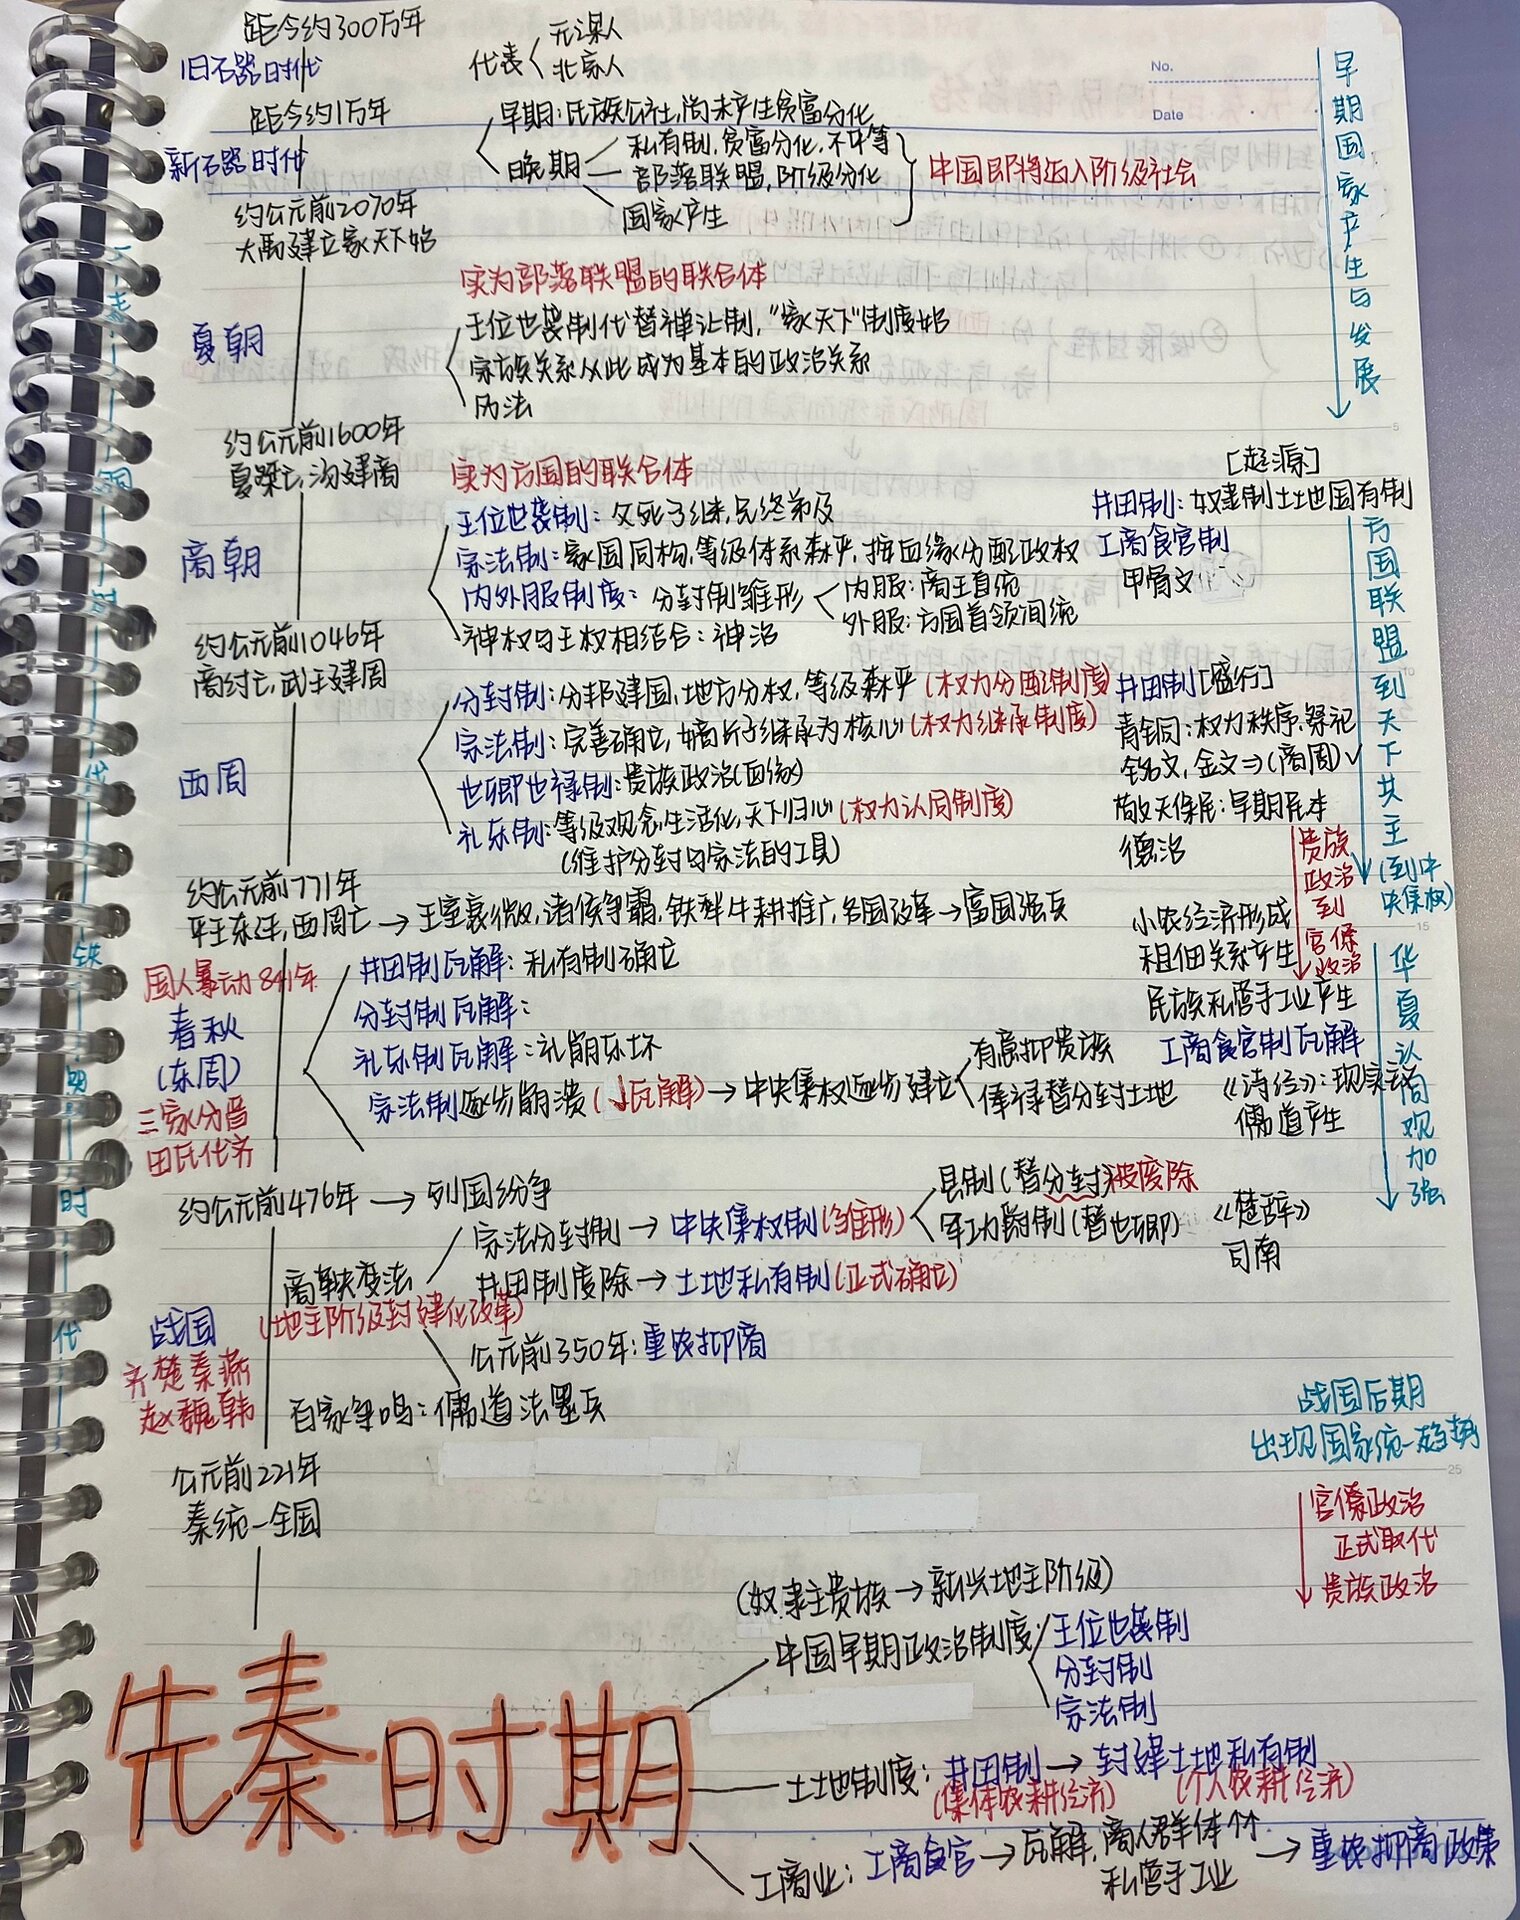 距今约300万年
旧石器时代
代表
元谋人
北京人
No.
Date
早期国家产生与发展
距今约1万年
新石器时代
早期:氏族公社,尚未产生贫富分化
晚期
私有制,贫富分化,不平等
部落联盟,阶级分化
国家产生
中国即将迈入阶级社会
约公元前2070年
大禹建立家天下始
夏朝
实为部落联盟的联合体
王位世袭制代替禅让制,"家天下"制度始
宗族关系从此成为基本的政治关系
历法
约公元前1600年
夏桀亡,汤建商
商朝
实为方国的联合体
王位世袭制:父死子继,兄终弟及
宗法制:家国同构,等级体系森严,按血缘分配政权
内外服制度:分封制雏形
内服:商王直统
外服:方国首领间统
神权与王权相结合:神治
[起源]
井田制:奴隶制土地国有制
工商食官制
甲骨文
方国联盟到天下共主
(到中央集权)
约公元前1046年
商纣亡,武王建周
西周
分封制:分邦建国,地方分权,等级森严(权力分配制度)
宗法制:完善确立,嫡长子继承为核心(权力继承制度)
世卿世禄制:贵族政治(血缘)
礼乐制:等级观念生活化,天下归心(权力认同制度)
(维护分封与宗法的工具)
井田制[盛行]
青铜:权力秩序.祭祀
铭文,金文⇒(商周)✓
敬天保民:早期民本
德治
贵族政治到官僚政治
约公元前771年
平王东迁,西周亡→王室衰微,诸侯争霸,铁犁牛耕推广,各国改革→富国强兵
国人暴动841年
春秋
(东周)
三家分晋
田氏代齐
井田制瓦解:私有制确立
分封制瓦解:
礼乐制瓦解:礼崩乐坏
宗法制逐步崩溃(↓瓦解)→中央集权逐步建立
有意抑贵族
俸禄替分封土地
小农经济形成
租佃关系产生
民族私营手工业产生
工商食官制瓦解
《诗经》:现实主义
儒道产生
华夏认同观加强
约公元前476年→列国纷争
战国
齐楚秦燕
赵魏韩
商鞅变法
(地主阶级封建化改革)
宗法分封制→中央集权制(雏形)
县制(替分封)被废除
军功爵制(替世卿)
井田制废除→土地私有制(正式确立)
公元前350年:重农抑商
百家争鸣:儒道法墨兵
《楚辞》
司南
战国后期
出现国家统一趋势
公元前221年
秦统一全国
官僚政治
正式取代
贵族政治
石器时代
青铜时代
铁器时代
先秦时期
(奴隶主贵族→新兴地主阶级)
中国早期政治制度
王位世袭制
分封制
宗法制
土地制度:井田制→封建土地私有制
(集体农耕经济)
(个人农耕经济)
工商业:工商食官→瓦解,商人群体↑↑
私营手工业
→重农抑商政策